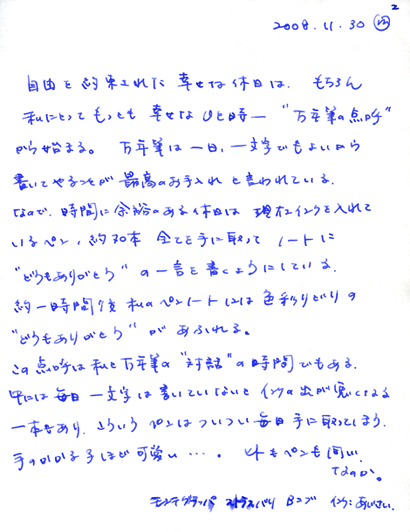 2
2008. 11. 30 ㊐
自由を約束された幸せな休日は、もちろん
私にとってもっとも幸せなひと時― "万年筆の点呼"
から始まる。 万年筆は一日、一文字でもよいから
書いてやることが 最高のお手入れ と言われている。
なので、時間に余裕のある休日は 現在インクを入れて
いるペン、約30本 全てを手に取って ノートに
"どうもありがとう" の一言を書くようにしている。
約一時間後 私のペンノートには色彩りどりの
"どうもありがとう" が あふれる。
この点呼は私と万年筆の "対話" の時間でもある。
中には毎日一文字は書いていないと インクの出が悪くなる
一本もあり、そういうペンはついつい毎日手に取ってしまう。
手のかかる子ほど可愛い・・・。 もペンも同い
なのか。
モンテグラッパ Bニブ インク:あじさい